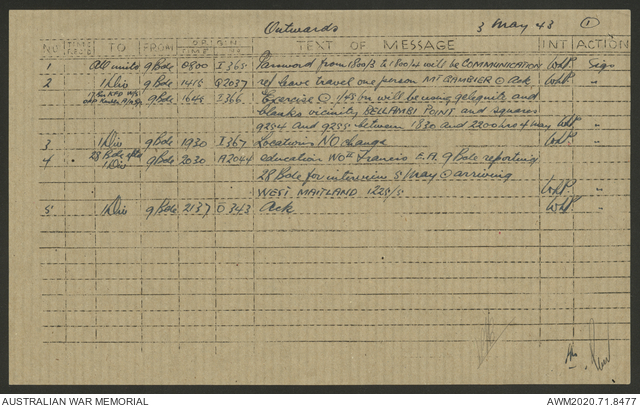 Outwards 3 May 43 1
NO TIME REC'D TO FROM ORIGIN TIME NO TEXT OF MESSAGE INT ACTION
1 All units 9 Bde 0800 I 365 Password from 1800/3 to 1800/4 will be COMMUNICATION WhP. Sigs
2 1 Div 9 Bde 1415 Q2037 ref leave travel one person MT GAMBIER Ack, WhP. "
9 Bde 1645 I366 Exercise 1/45 bn will be using gelignite and
blanks vicinity BELLAMBI POINT and squares
9254 and 9255 between 1830 and 2200 hrs 4 May WhP. "
3 1 Div 9 Bde 1930 I367 Locations NO change WhP. "
4 28 Bde info 1 Div 9 Bde 2030 A2044 education WO II Francis E.A. 9 Bde reporting
28 Bde for interview 5 May arriving
WEST MAITLAND 1225/5 WhP. "
5 1 Div 9 Bde 2137 O343 Ack WhP. "
AUSTRALIAN WAR MEMORIAL AWM2020.71.8477